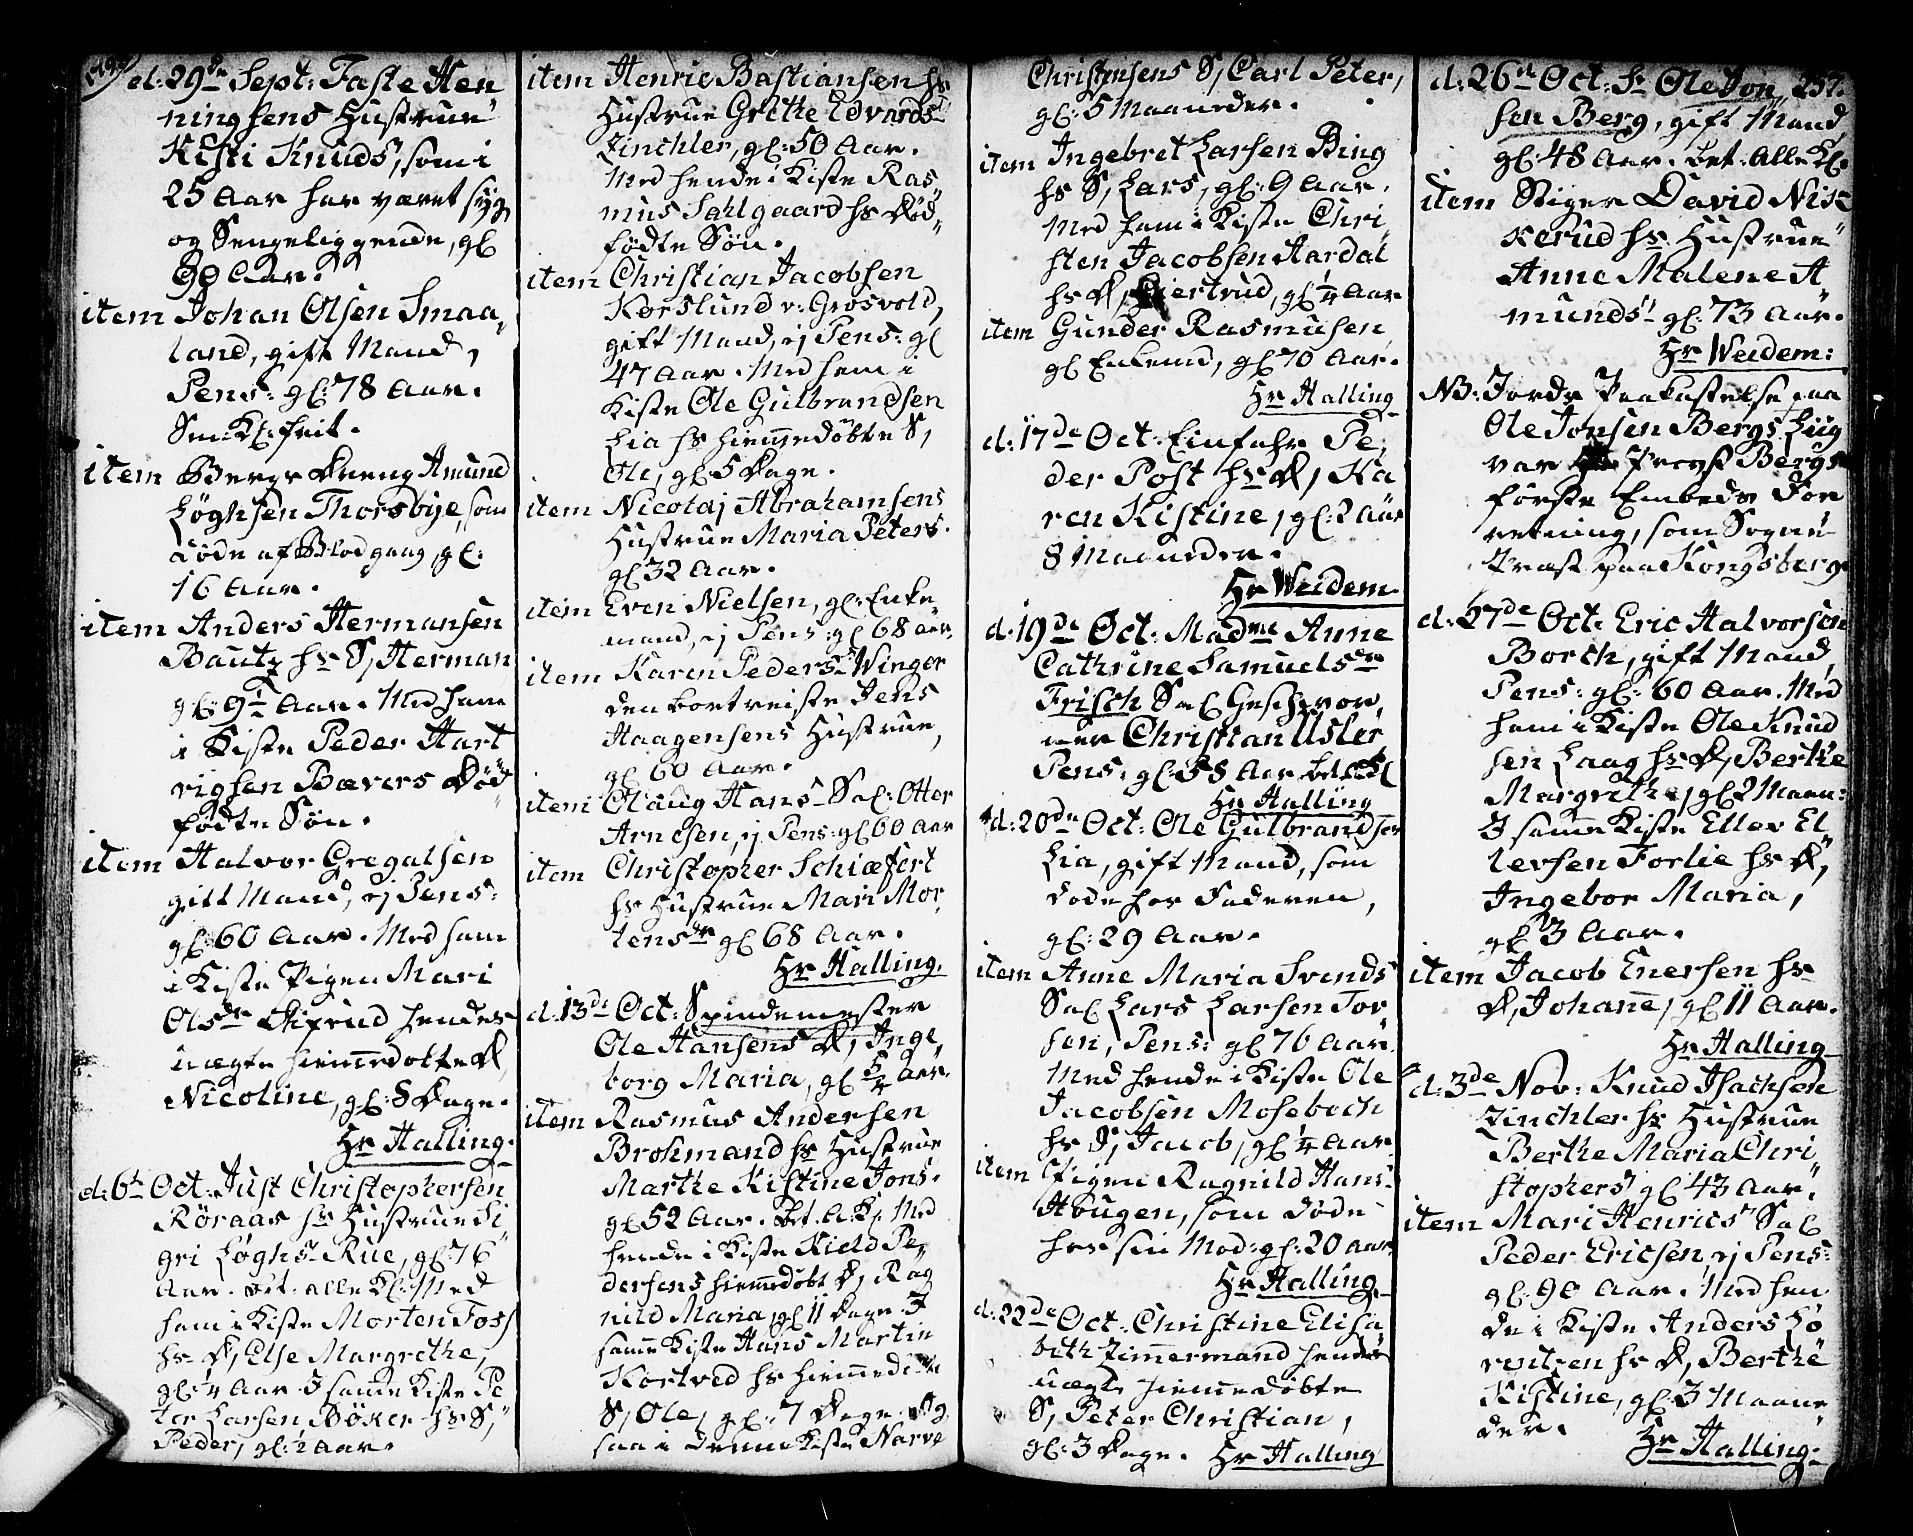 d: 29de Sept: Faste Hen
ningsens Hustrue
Kisti Knuds, som i
25 Aar har været syg
og Sengeliggende, gl
90 Aar.
item Johan Olsen Smaa,,
land, gift Mand,
Pens: gl: 78 Aar.
Sm: Kl: frit.
item Berge Dreng Amund
Løghsen Thorsbye, som
døde af Blodgang, gl:
16 Aar.
item Anders Hermansen
Bautz hs S, Herman
gl: 9 Aar. Med ham
i Kiste Peder Hart
vigsen Bævers Død
fødte Søn.
item Halvor Gregalsen
gift Mand, ej Pens:
gl: 60 Aar. Med ham
i Kiste Pigen Mari
Olsdr hendes
uægte hiemmedøbte D,
Nicoline, gl: 8 Dage.
Hr Halling.
d: 6t Oct: Just Christophersen
Røraas hs Hustrue Si
gri Løghsdr Rue, gl: 76
Aar. Bet. alle Kl: Med
ham i Kiste Morten Foss
hs D, Else Margrethe,
gl: 1/4 Aar. I samme Kiste Pe
ter Larsen Bøker hs S,
Peder, gl: 1/2 Aar.
item Henric Bastiansen hs
Hustrue Grethe Edvards
Zinchler, gl: 50 Aar.
Med hende i Kiste Ras
mus Sahlgaard hs Død,,
fødte Søn.
item Christian Jacobsen
Korslund v: Grosvold,
gift Mand, ej Pens: gl
47 Aar. Med ham i
Kiste Ole Gulbrandsen
Lia hs hiemmedøbte S,
Ole, gl: 5 Dage.
item Nicolaj Abrahamsens
Hustrue Maria Peters.
gl 32 Aar.
item Even Nielsen, gl: Enke
mand, ej Pens: gl 68 Aar.
item Karen Peders Winger
den bortreiste Jens
Haagensens Hustrue,
gl 60 Aar.
item Olaug Hans Sal: Otter
Arnesen, ej Pens: gl 60 Aar
item Christopher Schiæfert
hs Hustrue Mari Mor,
tensdr gl 68 Aar.
Hr Halling.
d: 13de Oct: Spindemester
Ole Hansens D, Inge,
borg Maria, gl 5/4 Aar.
item Rasmus Andersen
Brohmand hs Hustrue
Marthe Kistine Jons.
gl 52 Aar. Bet. A: K: Med
hende i Kiste Kield Pe,,
dersens hiemmedøbt D, Rag
nild Maria, gl 11 Dage. I
samme Kiste Hans Martin
Kortved hs hiemmedøbte
S, Ole, gl: 7 Dage. Og
saa i denne Kiste Narve
Christensens S, Carl Peter,
gl: 5 Maaneder.
item Ingebret Larsen Bing
hs S, Lars, gl: 9 Aar.
Med ham i Kiste Chri
sten Jacobsen Aardal
hs D, Giertrud, gl 1/4 Aar
item Gunder Rasmusen
gl Enkemd, gl 70 Aar.
Hr Halling
d: 17de Oct: Einfahr Pe,
der Post hs D, Ka
ren Kistine, gl: 2 Aar
8 Maaneder.
Hr Weidem.
d: 19de Oct: Madme Anne
Cathrine Samuelsdr
Frisch Sal Geschwor,
ner Christian Usler,
Pens. gl: 58 Aar
Hr Halling
d: 20de Oct: Ole Gulbrandsen
Lia, gift Mand, som
døde hos Faderen,
gl: 29 Aar.
item Anne Maria Svends
Sal Lars Larsen Tor
sen, Pens: gl 76 Aar.
Med hende i Kiste Ole
Jacobsen Moseboch
hs S, Jacob, gl 1/4 Aar
item Pigen Ragnild Hans
Haugen, som døde
hos sin Mod: gl: 20 Aar
Hr Halling.
d: 22de Oct: Christine Elisa
beth Zimmermand hendes
uægte hiemmedøbte
S, Peter Christian,
gl: 3 Dage. Hr Halling
257.
d: 26de Oct: Hr Ole Jon,,
sen Berg, gift Mand,
gl: 48 Aar. bet: Alle Kl.
item Stiger David Nis
kerud hs Hustrue
Anne Malene A
munds gl: 73 Aar.
Hr Weidem:
NB: Jords Paakastelse paa
Ole Jonsen Bergs Liig
var Provst Bergs
første Embeds For
retning, som Sogne
Præst paa Kongsberg
d: 27de Oct: Eric Halvorsen
Borch, gift Mand,
Pens: gl: 60 Aar. Med
ham i Kiste Ole Knud
sen Laag hs D, Berthe
Margrethe, gl 2 Maan:
I samme Kiste Ellev El
levsen Forlie hs D,
Ingebor Maria,
gl 3 Aar.
item Jacob Enersen hs
D, Johanne, gl 11 Aar.
Hr Halling
d: 3de Nov: Knud Isachsen
Zinchler hs Hustrue
Berthe Maria Chri
stophers gl 43 Aar.
item Mari Henrics Sal
Peder Ericsen, ej Pens:
gl: 90 Aar. Med hen
de i Kiste Anders Lø
rentzen hs D, Berthe
Kistine, gl: 3 Maane
der. Hr Halling.